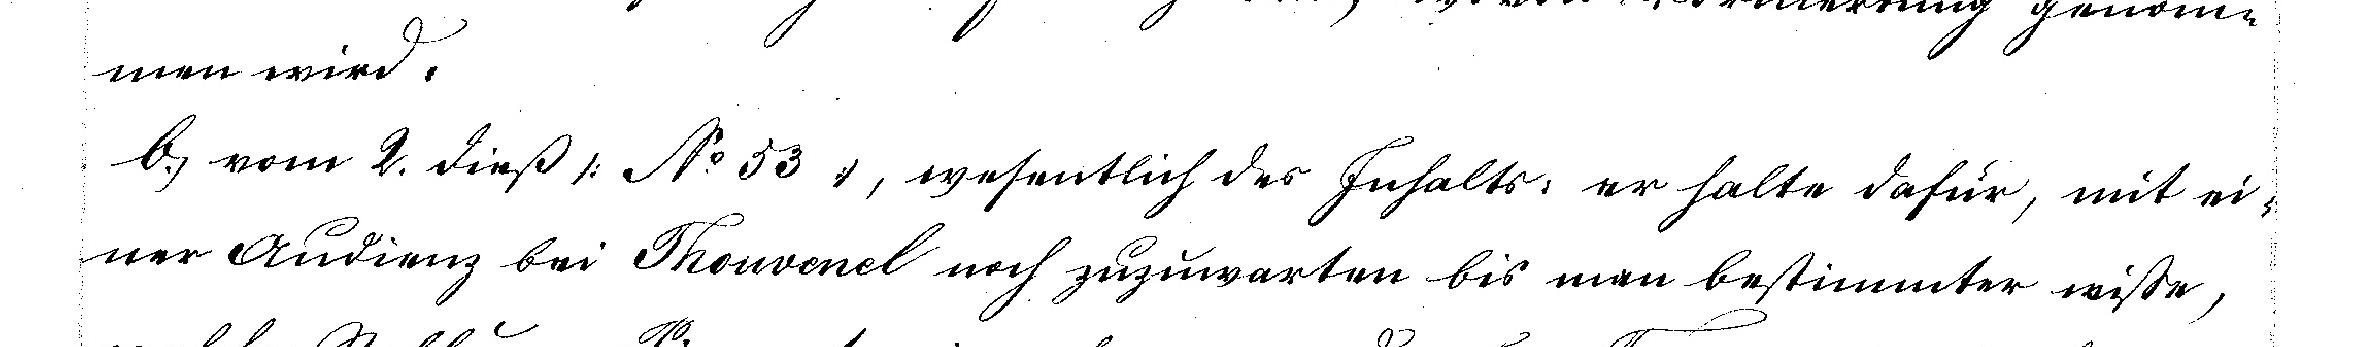 genom-
men wird.
b.) vom 2. dieß /: No 53 :/, wesentlich des Inhalts: er halte dafür, mit ei-
ner Audienz bei Thouvenel noch zuzuwarten bis man bestimmter wisse,